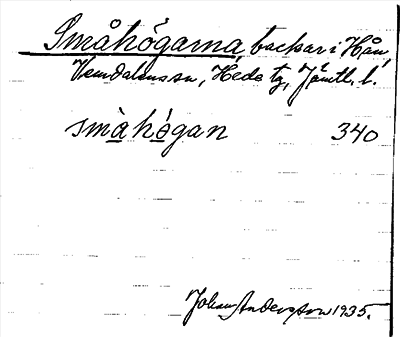 Småhögarna, backar i Hån,
Vemdalens sn, Hede tg, Jämtl. l.
småhǫ́gan 340
Johan Andersson 1935.